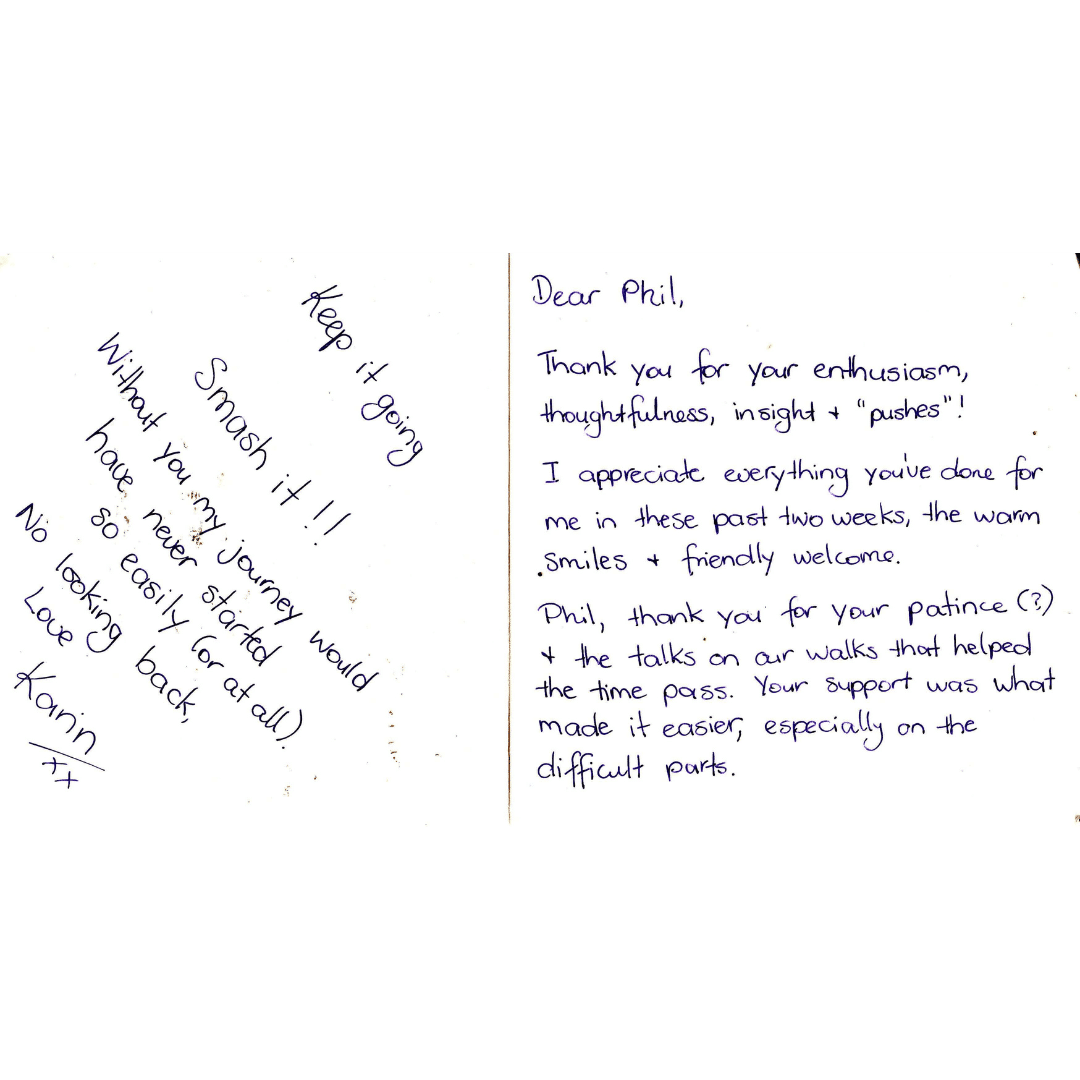 Dear Phil,
Thank you for your enthusiasm,
thoughtfulness, insight + "pushes"!
I appreciate everything you've done for
me in these past two weeks, the warm
smiles + friendly welcome.
Phil, thank you for your patince (?)
+ the talks on our walks that helped
the time pass. Your support was what
made it easier, especially on the
difficult parts.
Keep it going
Smash it!!
Without you my journey would
have never started
so easily (or at all).
No looking back,
Love
Karin
++